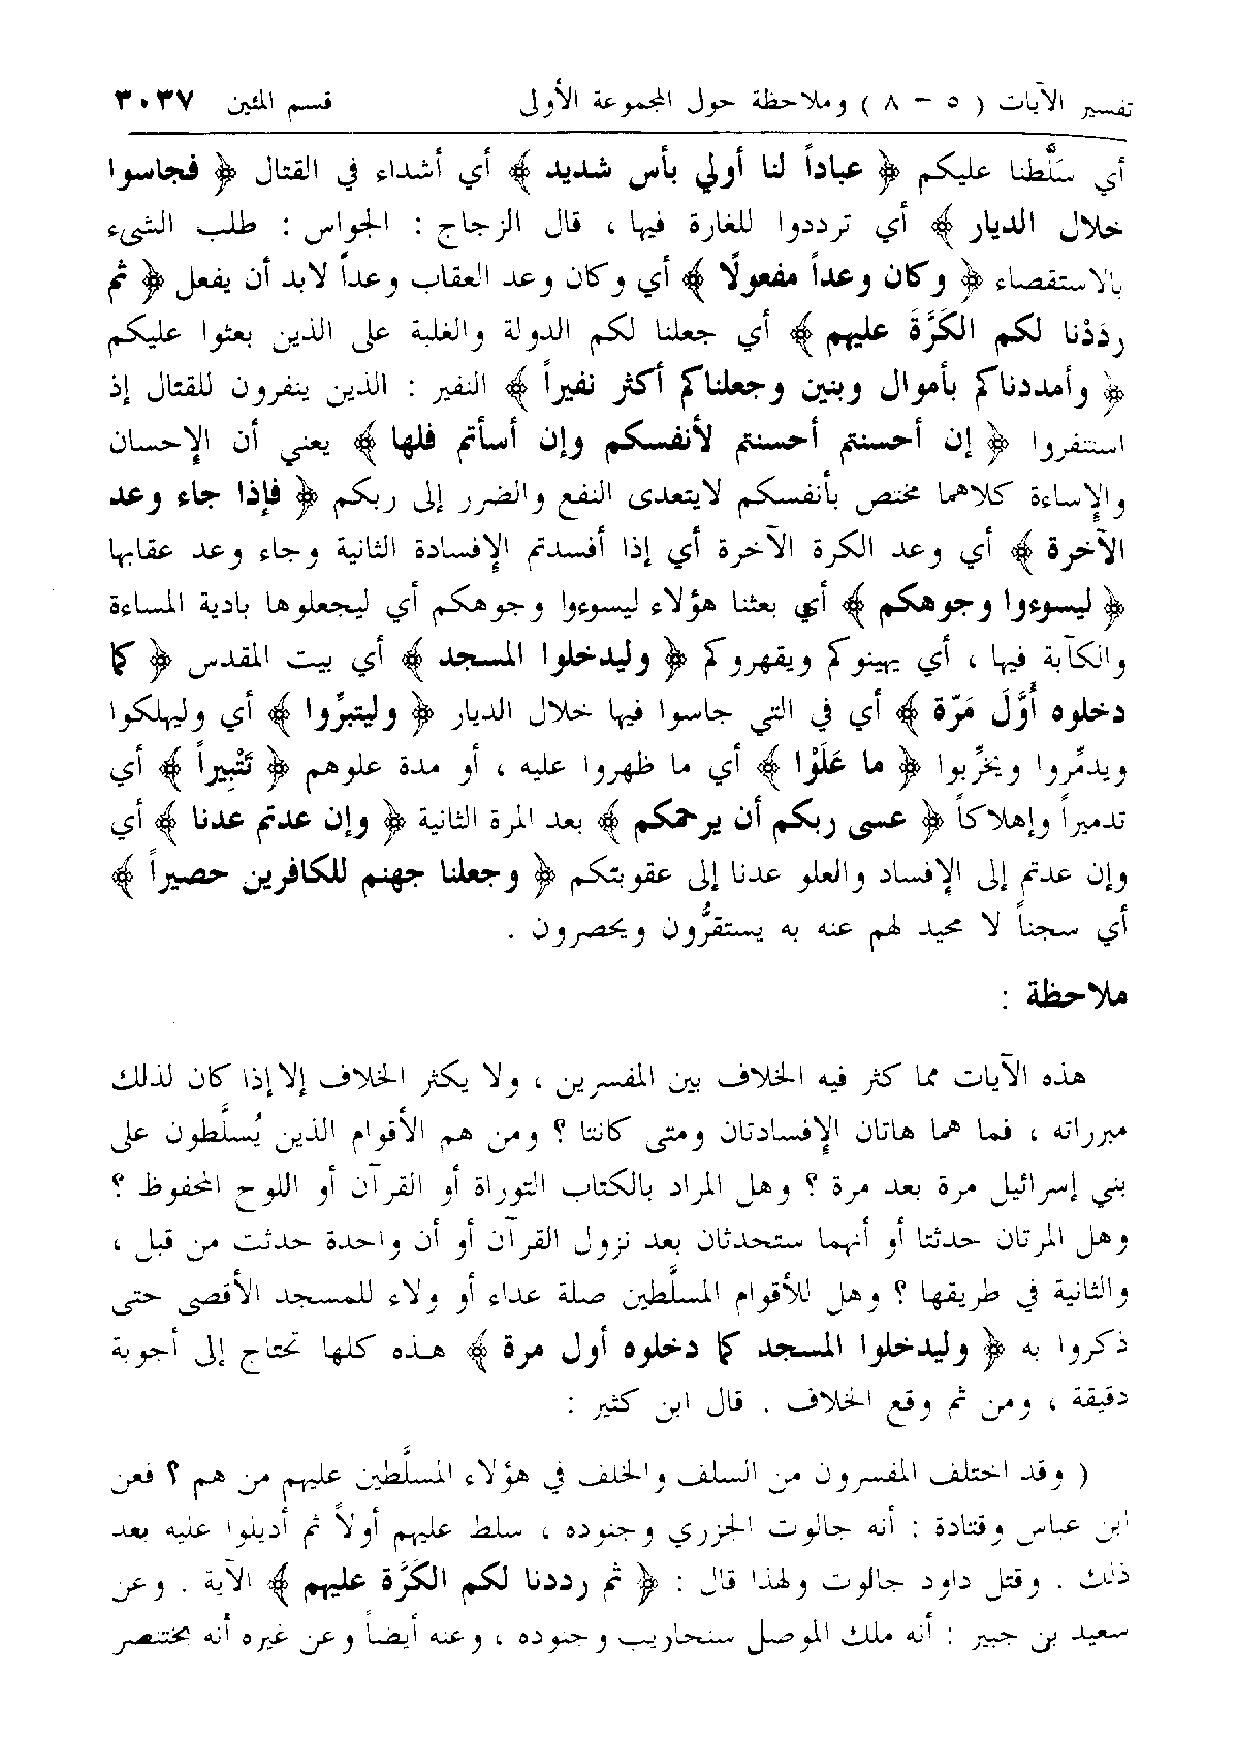 تفسير الآيات ( ٥ - ٨ ) وملاحظة حول المجموعة الأولى قسم المئين ٣٠٣٧
أي سَلَّطنا عليكم ﴿ عباداً لنا أولي بأس شديد ﴾ أي أشداء في القتال ﴿ فجاسوا
خلال الديار ﴾ أي ترددوا للغارة فيها ، قال الزجاج : الجواس : طلب الشيء
بالاستقصاء ﴿ وكان وعداً مفعولًا ﴾ أي وكان وعد العقاب وعداً لابد أن يفعل ﴿ ثم
رَدَدْنا لكم الكَرَّةَ عليهم ﴾ أي جعلنا لكم الدولة والغلبة على الذين بعثوا عليكم
﴿ وأمددناكم بأموال وبنين وجعلناكم أكثر نفيراً ﴾ النفير : الذين ينفرون للقتال إذ
استنفروا ﴿ إن أحسنتم أحسنتم لأنفسكم وإن أسأتم فلها ﴾ يعني أن الإحسان
والإساءة كلاهما مختص بأنفسكم لايتعدى النفع والضرر إلى ربكم ﴿ فإذا جاء وعد
الآخرة ﴾ أي وعد الكرة الآخرة أي إذا أفسدتم الإفسادة الثانية وجاء وعد عقابها
﴿ ليسوءوا وجوهكم ﴾ أي بعثنا هؤلاء ليسوءوا وجوهكم أي ليجعلوها بادية المساءة
والكآبة فيها ، أي يهينوكم ويقهروكم ﴿ وليدخلوا المسجد ﴾ أي بيت المقدس ﴿ كما
دخلوه أَوَّلَ مَرّة ﴾ أي في التي جاسوا فيها خلال الديار ﴿ وليتبِّروا ﴾ أي وليهلكوا
ويدمِّروا ويخرِّبوا ﴿ ما عَلَوْا ﴾ أي ما ظهروا عليه ، أو مدة علوهم ﴿ تَتْبِيراً ﴾ أي
تدميراً وإهلاكاً ﴿ عسى ربكم أن يرحمكم ﴾ بعد المرة الثانية ﴿ وإن عدتم عدنا ﴾ أي
وإن عدتم إلى الإفساد والعلو عدنا إلى عقوبتكم ﴿ وجعلنا جهنم للكافرين حصيراً ﴾
أي سجناً لا محيد لهم عنه به يستقرُّون ويحصرون .
ملاحظة :
هذه الآيات مما كثر فيه الخلاف بين المفسرين ، ولا يكثر الخلاف إلا إذا كان لذلك
مبرراته ، فما هما هاتان الإفسادتان ومتى كانتا ؟ ومن هم الأقوام الذين يُسلَّطون على
بني إسرائيل مرة بعد مرة ؟ وهل المراد بالكتاب التوراة أو القرآن أو اللوح المحفوظ ؟
وهل المرتان حدثتا أو أنهما ستحدثان بعد نزول القرآن أو أن واحدة حدثت من قبل ،
والثانية في طريقها ؟ وهل للأقوام المسلَّطين صلة عداء أو ولاء للمسجد الأقصى حتى
ذكروا به ﴿ وليدخلوا المسجد كما دخلوه أول مرة ﴾ هذه كلها تحتاج إلى أجوبة
دقيقة ، ومن ثم وقع الخلاف . قال ابن كثير :
( وقد اختلف المفسرون من السلف والخلف في هؤلاء المسلَّطين عليهم من هم ؟ فعن
ابن عباس وقتادة : أنه جالوت الجزري وجنوده ، سلط عليهم أولاً ثم أديلوا عليه بعد
ذلك . وقتل داود جالوت ولهذا قال : ﴿ ثم رددنا لكم الكَرَّة عليهم ﴾ الآية . وعن
سعيد بن جبير : أنه ملك الموصل سنحاريب وجنوده ، وعنه أيضاً وعن غيره أنه بختنصر